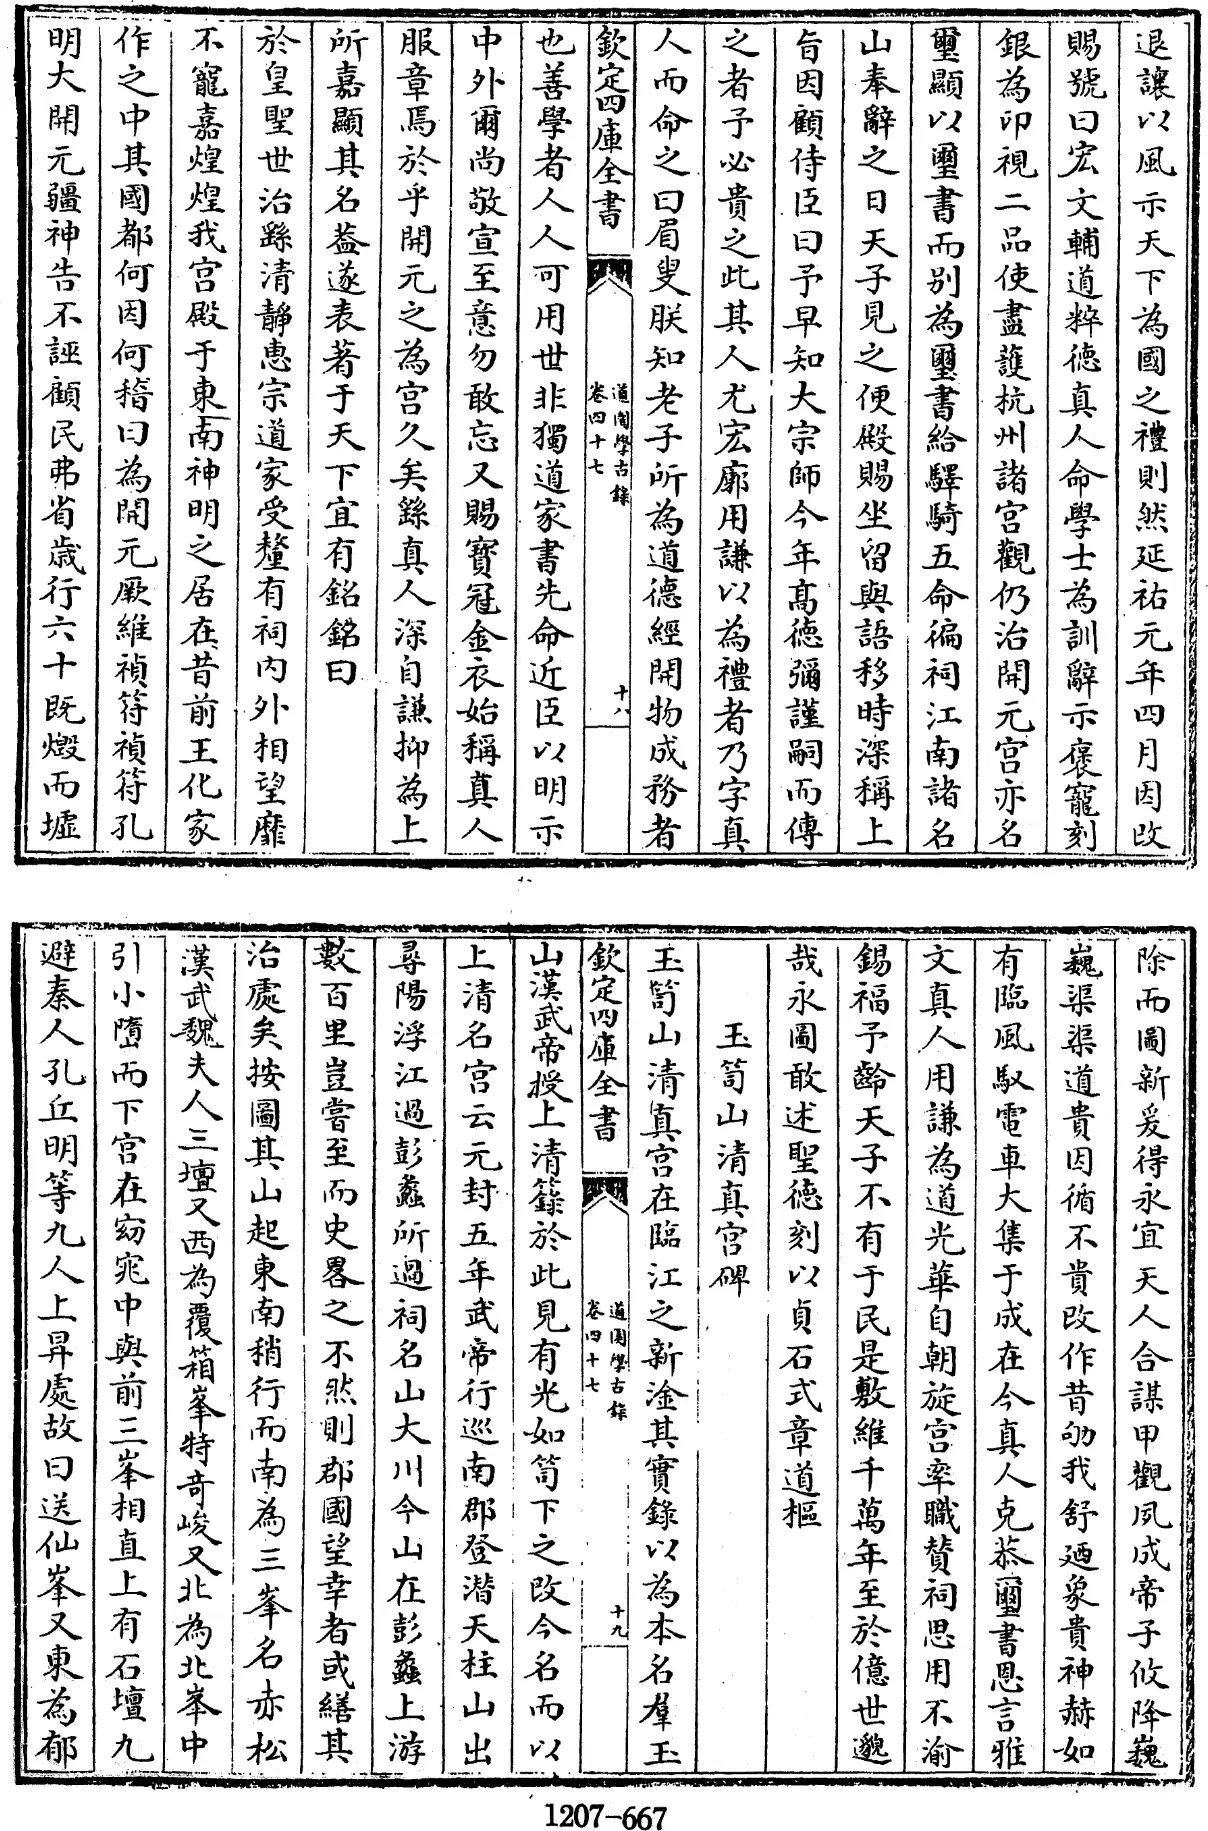 退讓以風示天下為國之禮則然延祐元年四月因改
賜號曰宏文輔道粹德真人命學士為訓辭示褒寵刻
銀為印視二品使盡護杭州諸宮觀仍治開元宮亦名
璽顯以璽書而别為璽書給驛騎五命徧祠江南諸名
山奉辭之日天子見之便殿賜坐留與語移時深稱上
旨因顧侍臣曰予早知大宗師今年高德彌謹嗣而傳
之者予必貴之此其人尤宏廓用謙以為禮者乃字真
人而命之曰眉叟朕知老子所為道德經開物成務者
欽定四庫全書
道園學古錄
卷四十七
十八
也善學者人人可用世非獨道家書先命近臣以明示
中外爾尚敬宣至意勿敢忘又賜寶冠金衣始稱真人
服章焉於乎開元之為宮久矣繇真人深自謙抑為上
所嘉顯其名益遂表著于天下宜有銘銘曰
於皇聖世治繇清靜惠宗道家受釐有祠内外相望靡
不寵嘉煌煌我宫殿于東南神明之居在昔前王化家
作之中其國都何因何稽曰為開元厥維禎符禎符孔
明大開元疆神告不誣顧民弗省歲行六十既燬而墟
除而圖新爰得永宜天人合謀甲觀夙成帝子攸降巍
巍渠渠道貴因循不貴改作昔劬我舒廼象貴神赫如
有臨風馭電車大集于成在今真人克恭璽書恩言雅
文真人用謙為道光華自朝旋宮率職賛祠思用不渝
錫福予齡天子不有于民是敷維千萬年至於億世邈
哉永圖敢述聖德刻以貞石式章道樞
玉笥山清真宮碑
玉笥山清真宮在臨江之新淦其實錄以為本名羣玉
欽定四庫全書
道園學古錄
卷四十七
十九
山漢武帝授上清籙於此見有光如笥下之改今名而以
上清名宮云元封五年武帝行巡南郡登潛天柱山出
尋陽浮江過彭蠡所過祠名山大川今山在彭蠡上游
數百里豈嘗至而史畧之不然則郡國望幸者或繕其
治處矣按圖其山起東南稍行而南為三峯名赤松
漢武魏夫人三壇又西為覆箱峯特奇峻又北為北峯中
引小墮而下宮在窈窕中與前三峯相直上有石壇九
避秦人孔丘明等九人上昇處故曰送仙峯又東為郁
1207-667